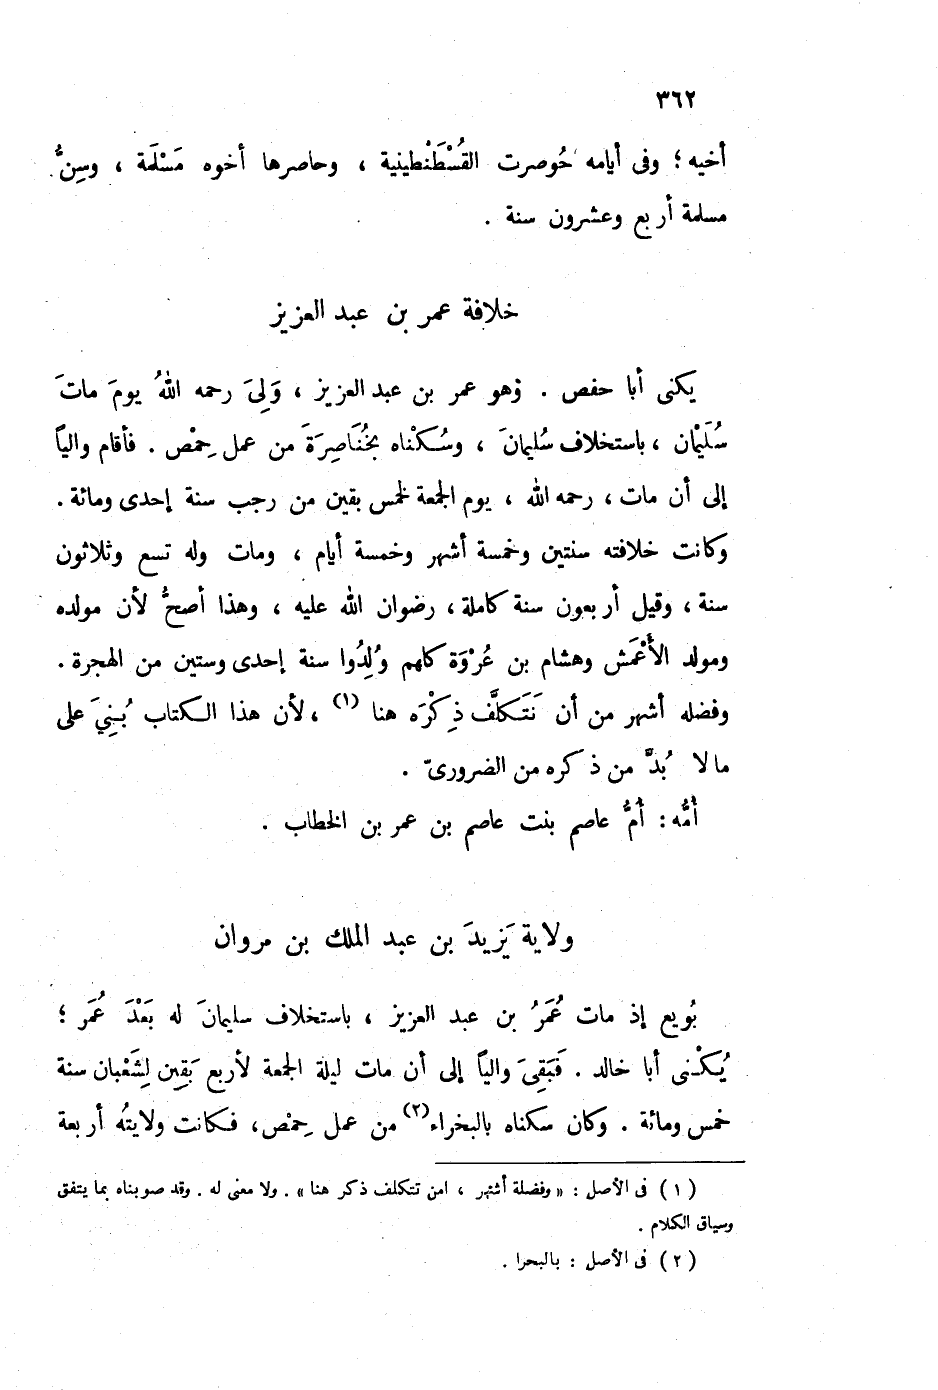 ٣٦٢
أخيه ؛ وفى أيامه حُوصرت القُسْطَنْطينية ، وحاصرها أخوه مَسْلَمة ، وسِنُّ
مسلمة أربع وعشرون سنة .
خلافة عمر بن عبد العزيز
يكنى أبا حفص . وهو عمر بن عبد العزيز ، وَلِىَ رحمه اللهُ يومَ ماتَ
سُلَيْمان ، باستخلاف سُليمانَ ، وسُكْناه بخُنَاصِرَةَ من عمل حِمْص . فأقام والياً
إلى أن مات ، رحمه الله ، يوم الجمعة لخمس بقين من رجب سنة إحدى ومائة .
وكانت خلافته سنتين وخمسة أشهر وخمسة أيام ، ومات وله تسع وثلاثون
سنة ، وقيل أربعون سنة كاملة ، رضوان الله عليه ، وهذا أصحُّ لأن مولده
ومولد الأَعْمَش وهشام بن عُرْوَة كلهم وُلِدُوا سنة إحدى وستين من الهجرة .
وفضله أشهر من أن نَتَكلَّف ذِكْرَه هنا (١) ، لأن هذا الكتاب بُنِيَ على
مالا بُدَّ من ذكره من الضرورىّ .
أمُّه : أُمُّ عاصم بنت عاصم بن عمر بن الخطاب .
ولاية يَزِيدَ بن عبد الملك بن مروان
بُويع إذ مات عُمَرُ بن عبد العزيز ، باستخلاف سليمانَ له بَعْدَ عُمَر ؛
يُكْنى أبا خالد . فَبَقِىَ والياً إلى أن مات ليلة الجمعة لأربع بَقِين لِشَعْبان سنة
خمس ومائة . وكان سكناه بالبخراء(٢) من عمل حِمْص ، فكانت ولايتُه أربعة
(١) فى الأصل : « وفضلة أشهر ، امن تتكلف ذكر هنا » . ولا معنى له . وقد صوبناه بما يتفق
وسياق الكلام .
(٢) فى الأصل : بالبحرا .